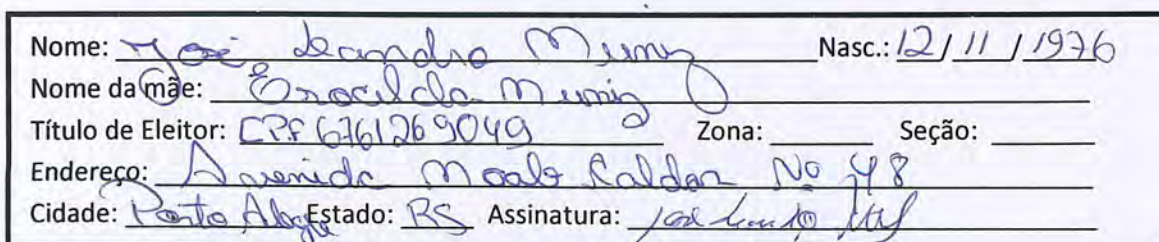 Nome: José Leandro Muniz Nasc.: 12/11/1976
Nome da mãe: Erocilda Muniz
Título de Eleitor: CPF 6761269049 Zona: Seção:
Endereço: Avenida Moab Caldas Nº 48
Cidade: Porto Alegre Estado: RS Assinatura: